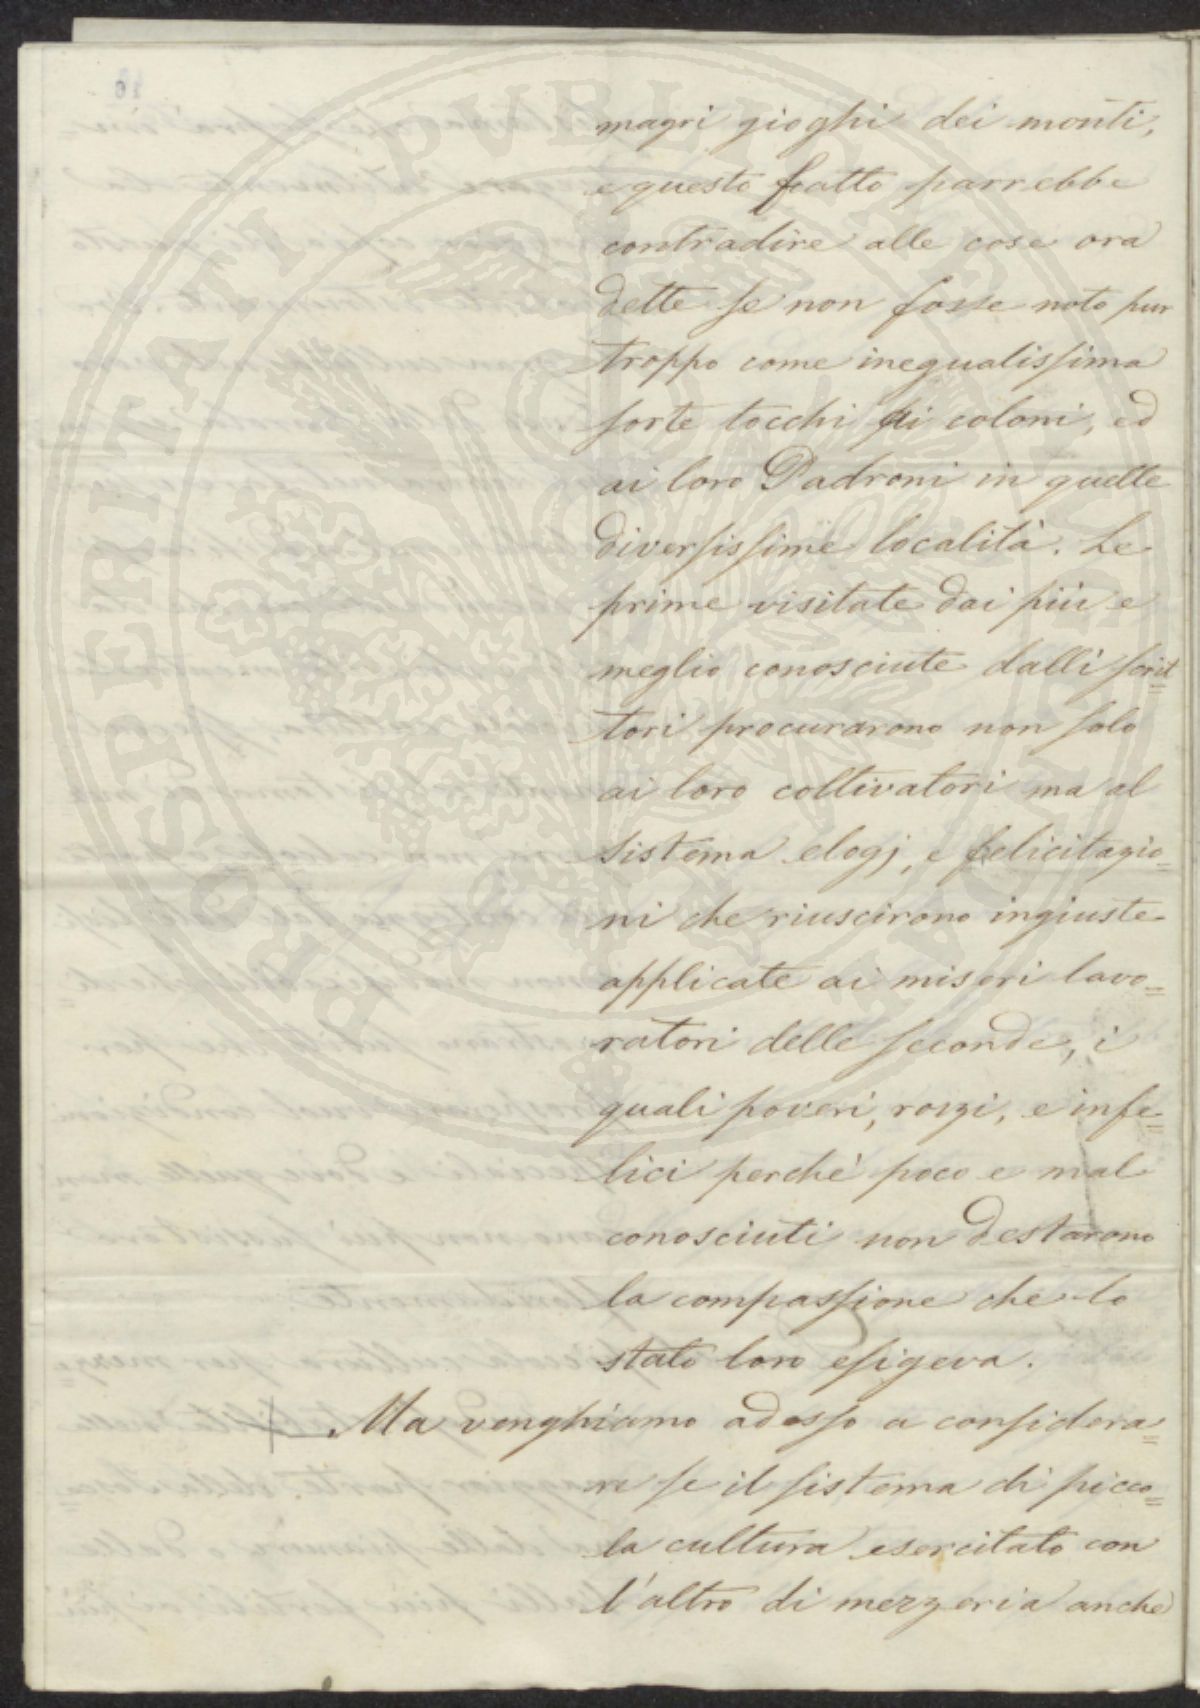 magri gioghi dei monti,
e questo fatto parrebbe
contradire alle cose ora
dette se non fosse noto pur
troppo come inegualissima
sorte tocchi ai coloni, ed
ai loro Padroni in quelle
diversissime località. Le
prime visitate dai più e
meglio conosciute dalli scrit=
tori procurarono non solo
ai loro coltivatori ma al
sistema elogj, e felicitazio=
ni che riuscirono ingiuste
applicate ai miseri lavo=
ratori delle seconde, i
quali poveri, rozzi, e infe=
lici perchè poco e mal
conosciuti non destarono
la compassione che lo
stato loro esigeva.
Ma venghiamo adesso a considera=
re se il sistema di picco=
la cultura esercitato con
l'altro di mezzeria anche
PROSPERITATI PVBLICAE AVGENDAE